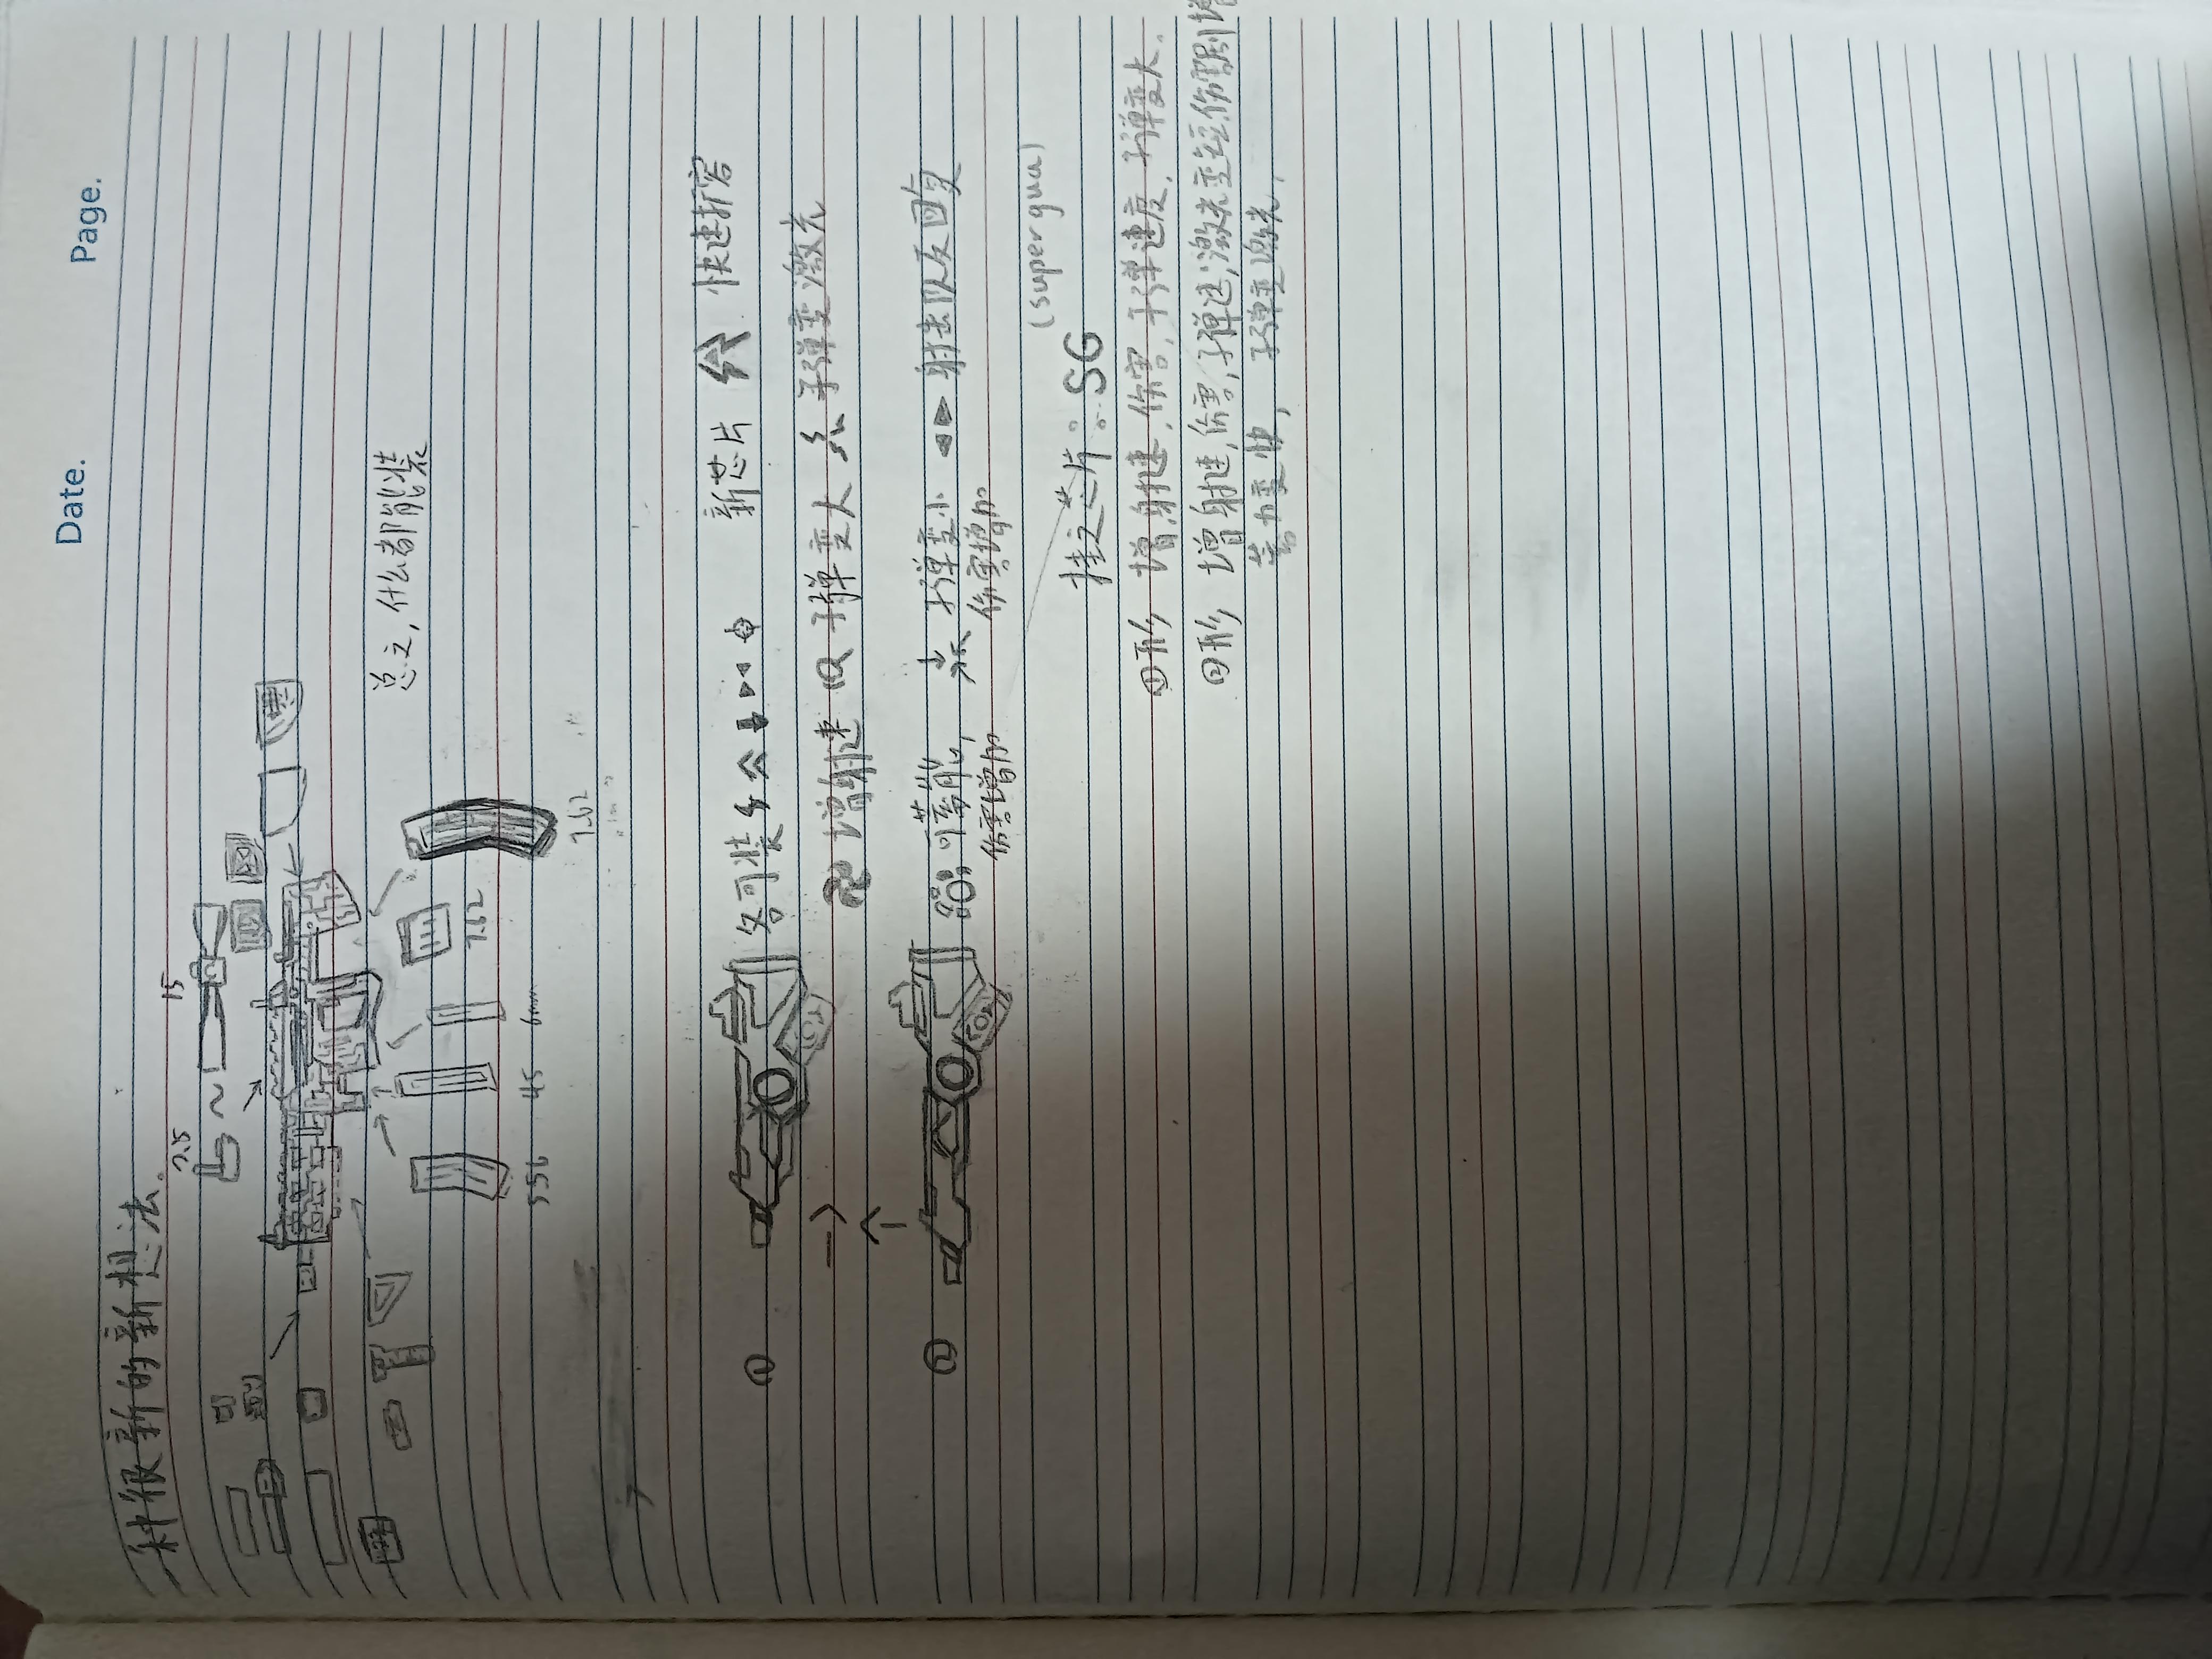 Date. Page.
一种很新的新想法.
2.5 ~ 15
总之,什么都能装
556 45 6mm 7.62 7.62
① 各可装 新芯片 快速扩容
增射速 子弹变大 子弹变激光
② 可蓄能, 子弹变小 射击队友回复
伤害增加 伤害增加
挂之芯片: SG (super gua)
①形 增射速,伤害,子弹速度,子弹变大.
②形 增射速,伤害,子弹速,激光变短伤害剧增
蓄力变快, 子弹变激光,